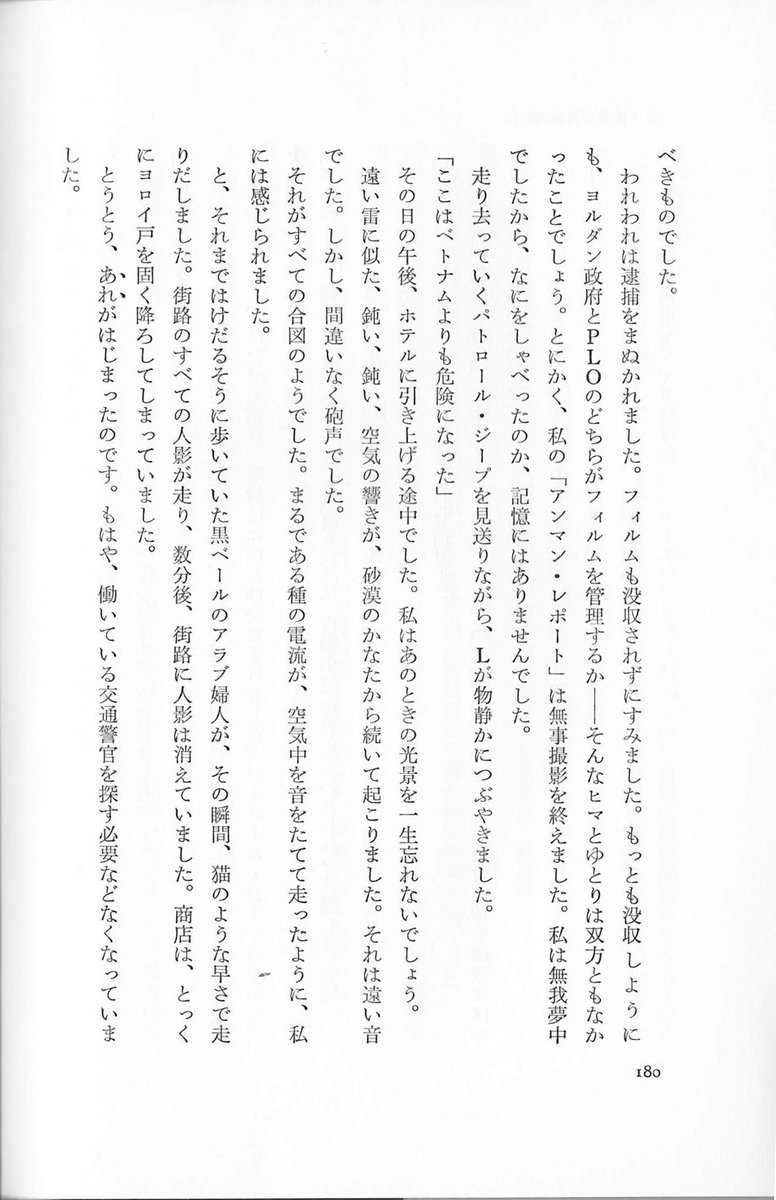 べきものでした。
われわれは逮捕をまぬかれました。フィルムも没収されずにすみました。もっとも没収しように
も、ヨルダン政府とPLOのどちらがフィルムを管理するか――そんなヒマとゆとりは双方ともなか
ったことでしょう。とにかく、私の「アンマン・レポート」は無事撮影を終えました。私は無我夢中
でしたから、なにをしゃべったのか、記憶にはありませんでした。
走り去っていくパトロール・ジープを見送りながら、Lが物静かにつぶやきました。
「ここはベトナムよりも危険になった」
その日の午後、ホテルに引き上げる途中でした。私はあのときの光景を一生忘れないでしょう。
遠い雷に似た、鈍い、鈍い、空気の響きが、砂漠のかなたから続いて起こりました。それは遠い音
でした。しかし、間違いなく砲声でした。
それがすべての合図のようでした。まるである種の電流が、空気中を音をたてて走ったように、私
には感じられました。
と、それまではけだるそうに歩いていた黒ベールのアラブ婦人が、その瞬間、猫のような早さで走
りだしました。街路のすべての人影が走り、数分後、街路に人影は消えていました。商店は、とっく
にヨロイ戸を固く降ろしてしまっていました。
とうとう、あれがはじまったのです。もはや、働いている交通警官を探す必要などなくなっていま
した。
180